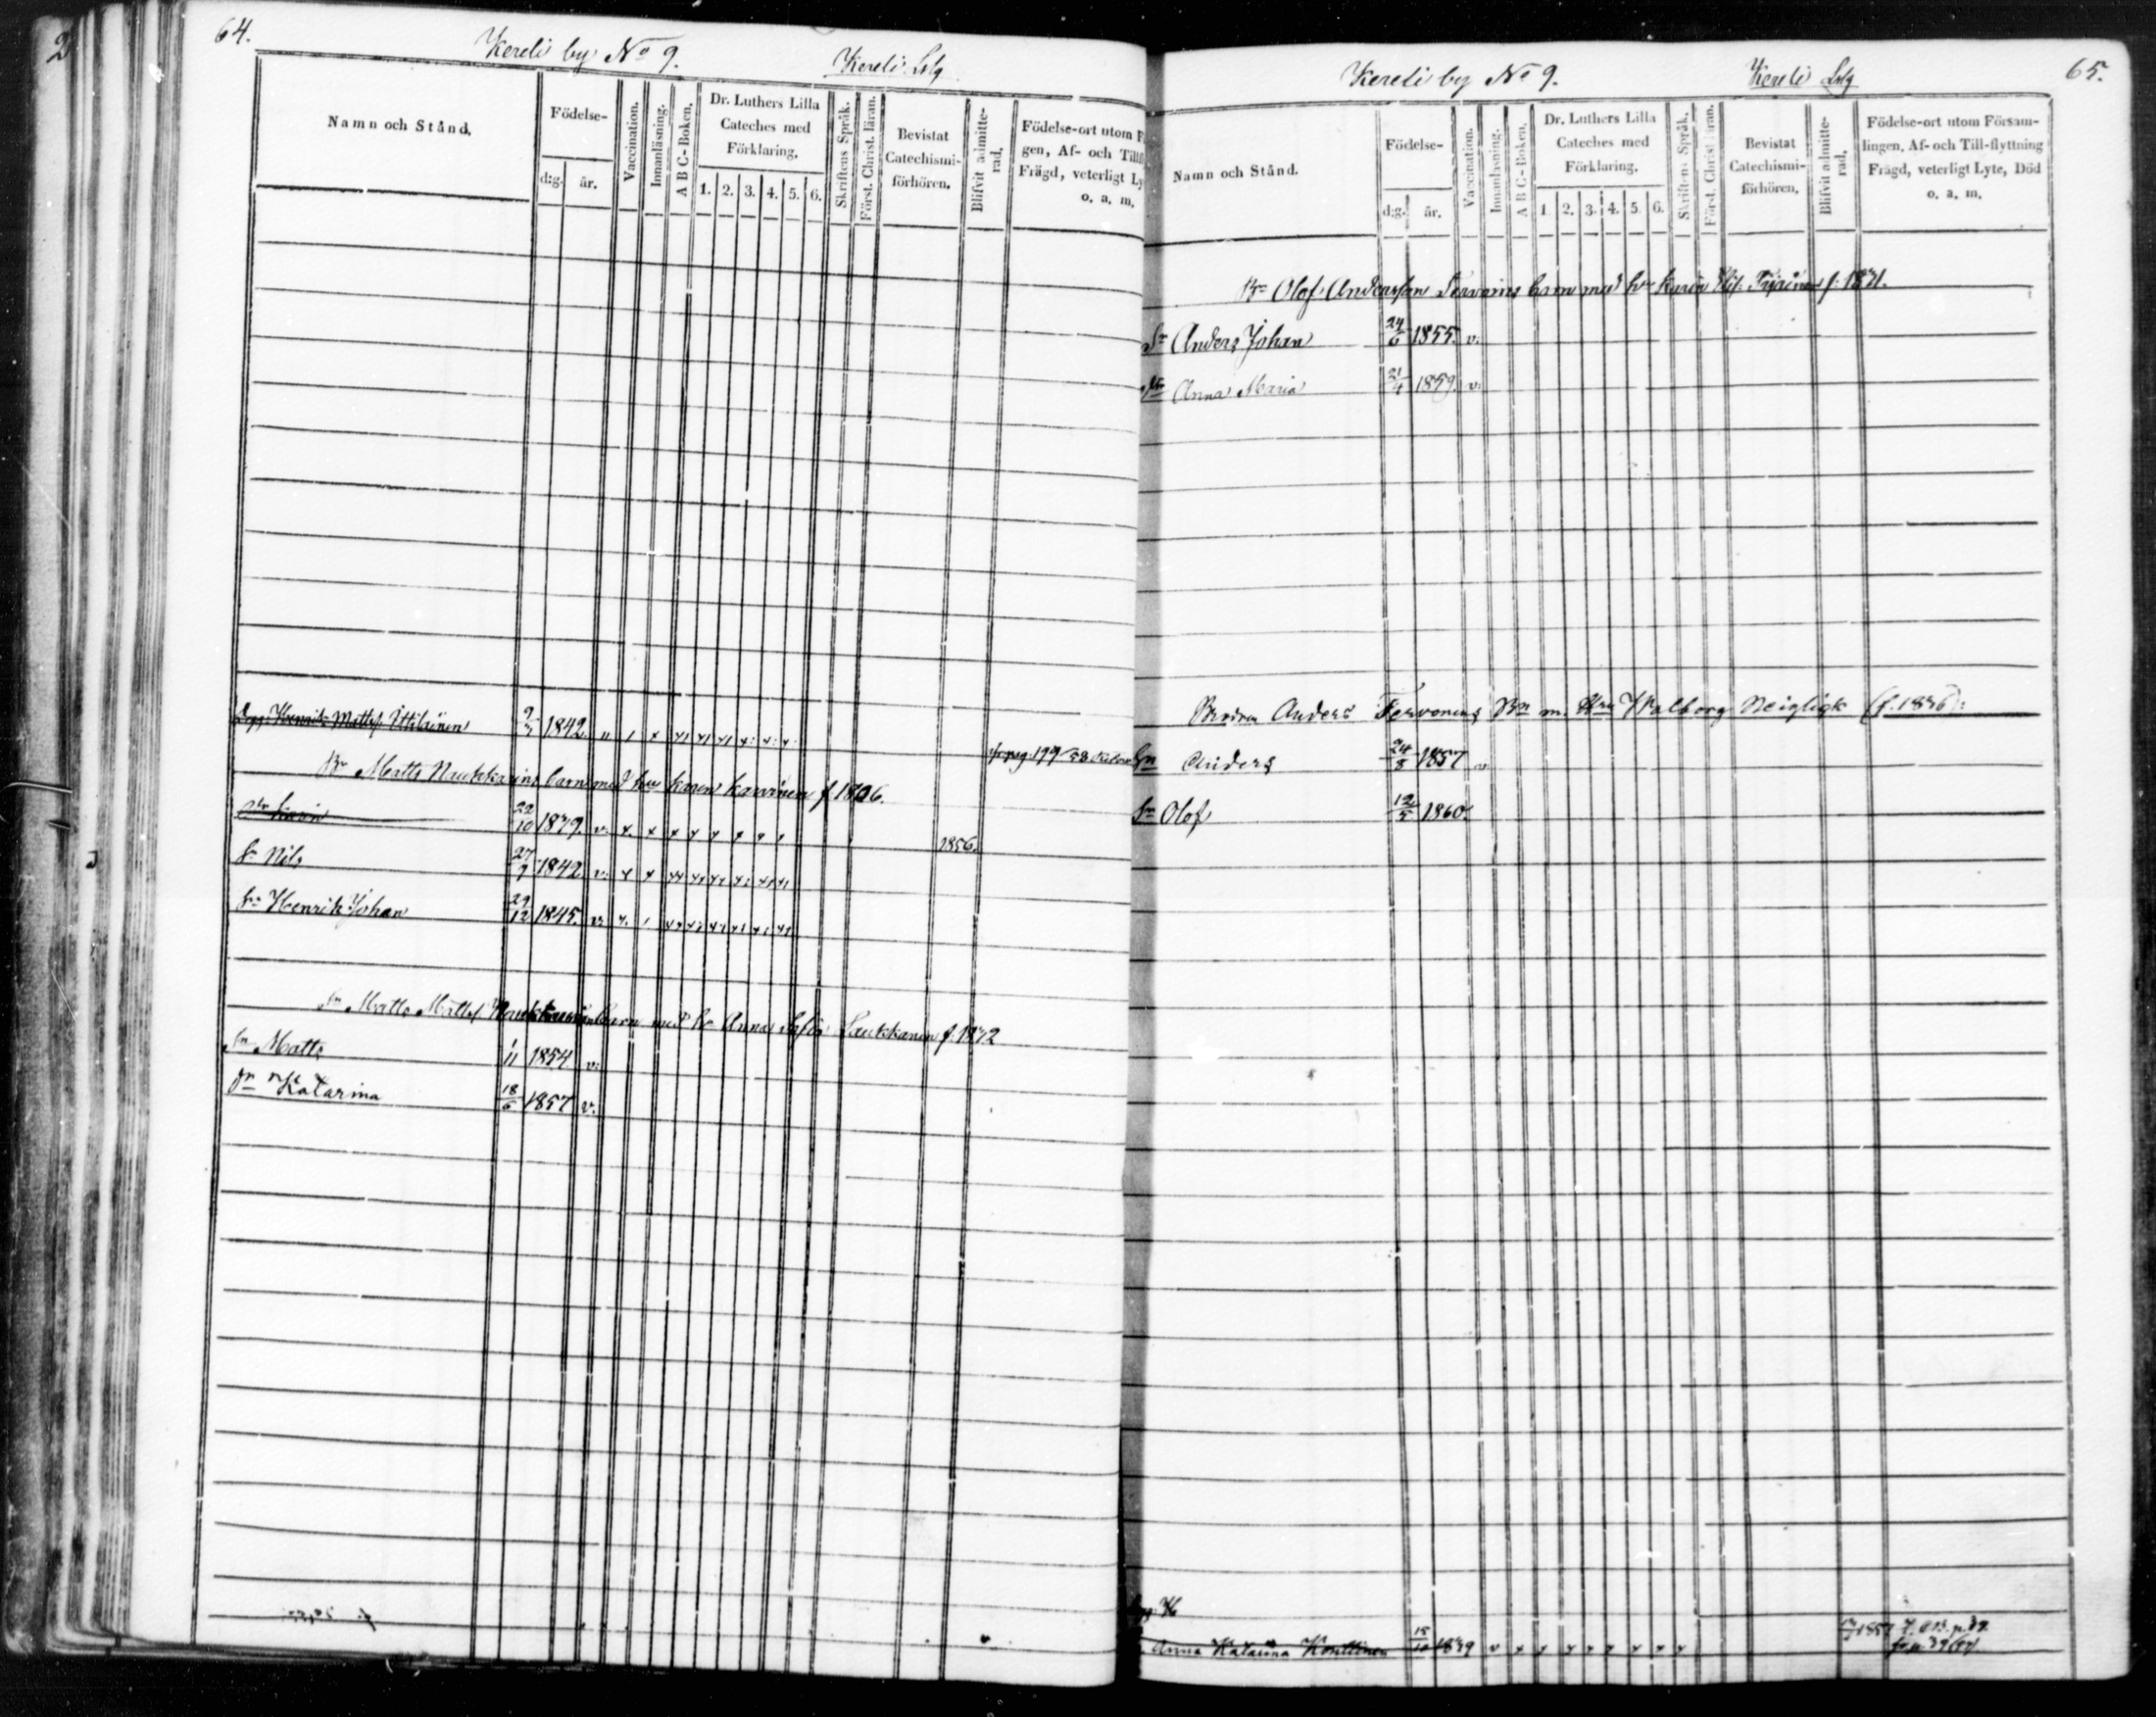 64.
Kereli by No 9.
Kereli Lslg
Namn och Stånd.
Födelse-
d:g. år.
Vaccination.
Innanläsning.
A B C-Boken.
Dr. Luthers Lilla
Cateches med
Förklaring.
1. 2. 3. 4. 5. 6.
Skriftens Språk.
Först. Christ. läran.
Bevistat
Catechismi-
förhören.
Blifvit admitte-
rad.
Födelse-ort utom F
gen, Af- och Tillfl
Frägd, veterligt Ly
o. a. m.
Henrik Mattss. Ittiläinen 1842
Bn Matts Naukkarins barn med hu Karin Karvinen f 1806.
dr Karin 22/10 1839. v. 1856.
Sn Nils 27/7 1842 v.
Sn Henrik Johan 29/12 1845. v.
Sn Matts Mattss Naukkarins barn med hu Anna Sofia Laukkanen f. 1832
Sn Matts 1/11 1854 v.
Dr Katarina 18/6 1857 v.
65.
Kereli by No 9.
Kereli Lslg
Namn och Stånd.
Födelse-
d:g. år.
Vaccination.
Innanläsning.
A B C-Boken.
Dr. Luthers Lilla
Cateches med
Förklaring.
1. 2. 3. 4. 5. 6.
Skriftens Språk.
Först. Christ. läran.
Bevistat
Catechismi-
förhören.
Blifvit admitte-
rad.
Födelse-ort utom Församlingen, Af- och Till-flyttning
Frägd, veterligt Lyte, Död
o. a. m.
Bn Olof Andersson Tervonins barn med hu Karin f. 1831.
Sn Anders Johan 24/6 1855. v.
Dr Anna Maria 21/4 1859. v.
Brodren Anders Tervonens Bn m. Hru Walborg Neiglick (f. 1836):
Sn Anders 24/8 1857 v
Sn Olof 12/5 1860.
Anna Katarina Konttinen 1839